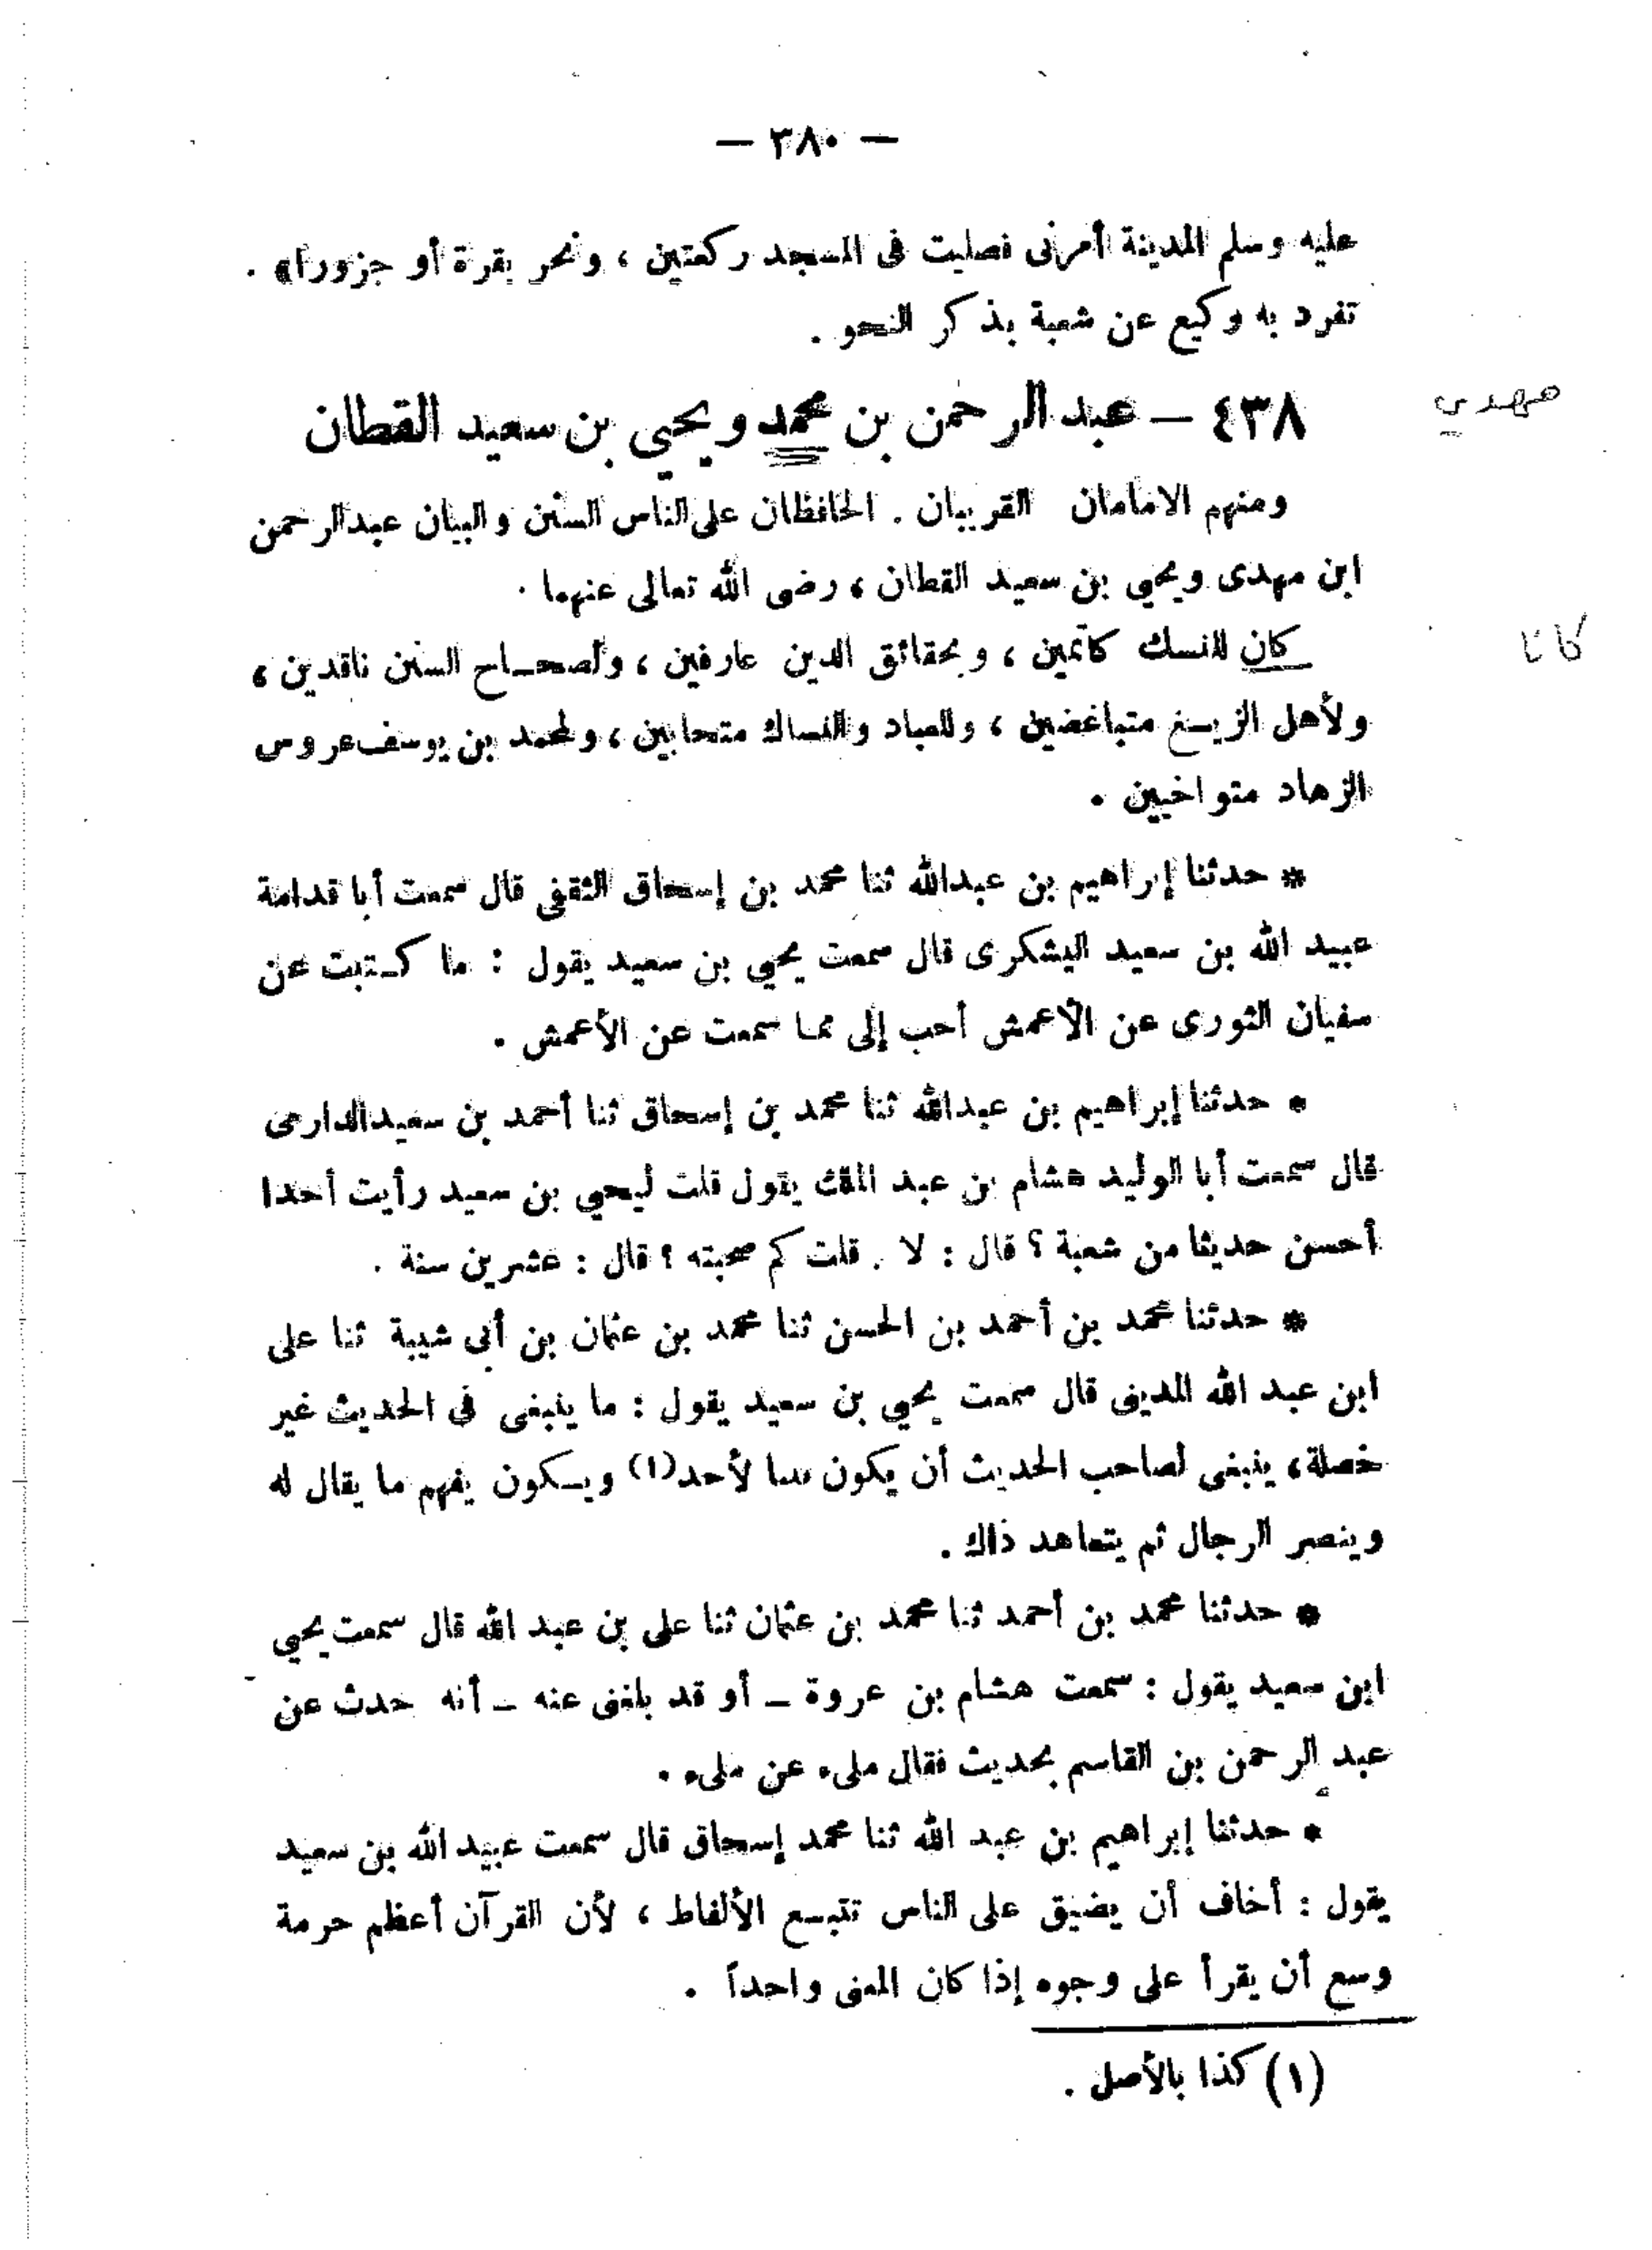 — ٣٨٠ —
عليه وسلم المدينة أمرنى فصليت فى المسجد ركعتين ، ونحر بقرة أو جزورا» .
تفرد به وكيع عن شعبة بذكر النحو .
٤٣٨ – عبد الرحمن بن محمد ويحيى بن سعيد القطان
مهدي
ومنهم الامامان القريبان . الحافظان على الناس السنن والبيان عبدالرحمن
ابن مهدى ويحيى بن سعيد القطان ، رضى الله تعالى عنهما .
كان للنسك كاتمين ، وبحقائق الدين عارفين ، ولصحاح السنن ناقدين ،
كانا
ولأهل الزيغ متباغضين ، وللعباد والنساك متحابين ، ولمحمد بن يوسف عروس
الزهاد متواخيين .
* حدثنا إبراهيم بن عبدالله ثنا محمد بن إسحاق الثقفى قال سمعت أبا قدامة
عبيد الله بن سعيد اليشكرى قال سمعت يحيى بن سعيد يقول : ما كتبت عن
سفيان الثورى عن الأعمش أحب إلى مما سمعت عن الأعمش .
* حدثنا إبراهيم بن عبدالله ثنا محمد بن إسحاق ثنا أحمد بن سعيد الدارمى
قال سمعت أبا الوليد هشام بن عبد الملك يقول قلت ليحيى بن سعيد رأيت أحدا
أحسن حديثا من شعبة ؟ قال : لا . قلت كم صحبته ؟ قال : عشرين سنة .
* حدثنا محمد بن أحمد بن الحسن ثنا محمد بن عثمان بن أبى شيبة ثنا على
ابن عبد الله المدينى قال سمعت يحيى بن سعيد يقول : ما ينبغى فى الحديث غير
خصلة، ينبغى لصاحب الحديث أن يكون لأحد(١) ويكون يفهم ما يقال له
وينصر الرجال ثم يتعاهد ذاك .
* حدثنا محمد بن أحمد ثنا محمد بن عثمان ثنا على بن عبد الله قال سمعت يحيى
ابن سعيد يقول : سمعت هشام بن عروة – أو قد بلغنى عنه – أنه حدث عن
عبد الرحمن بن القاسم بحديث فقال ملىء عن ملىء .
* حدثنا إبراهيم بن عبد الله ثنا محمد إسحاق قال سمعت عبيد الله بن سعيد
يقول : أخاف أن يضيق على الناس تتبع الألفاط ، لأن القرآن أعظم حرمة
وسع أن يقرأ على وجوه إذا كان المعنى واحداً .
(١) كذا بالأصل .